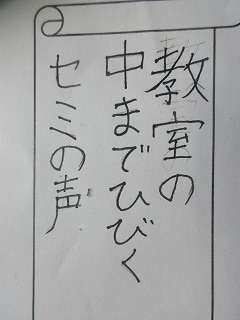 教室の
中までひびく
セミの声